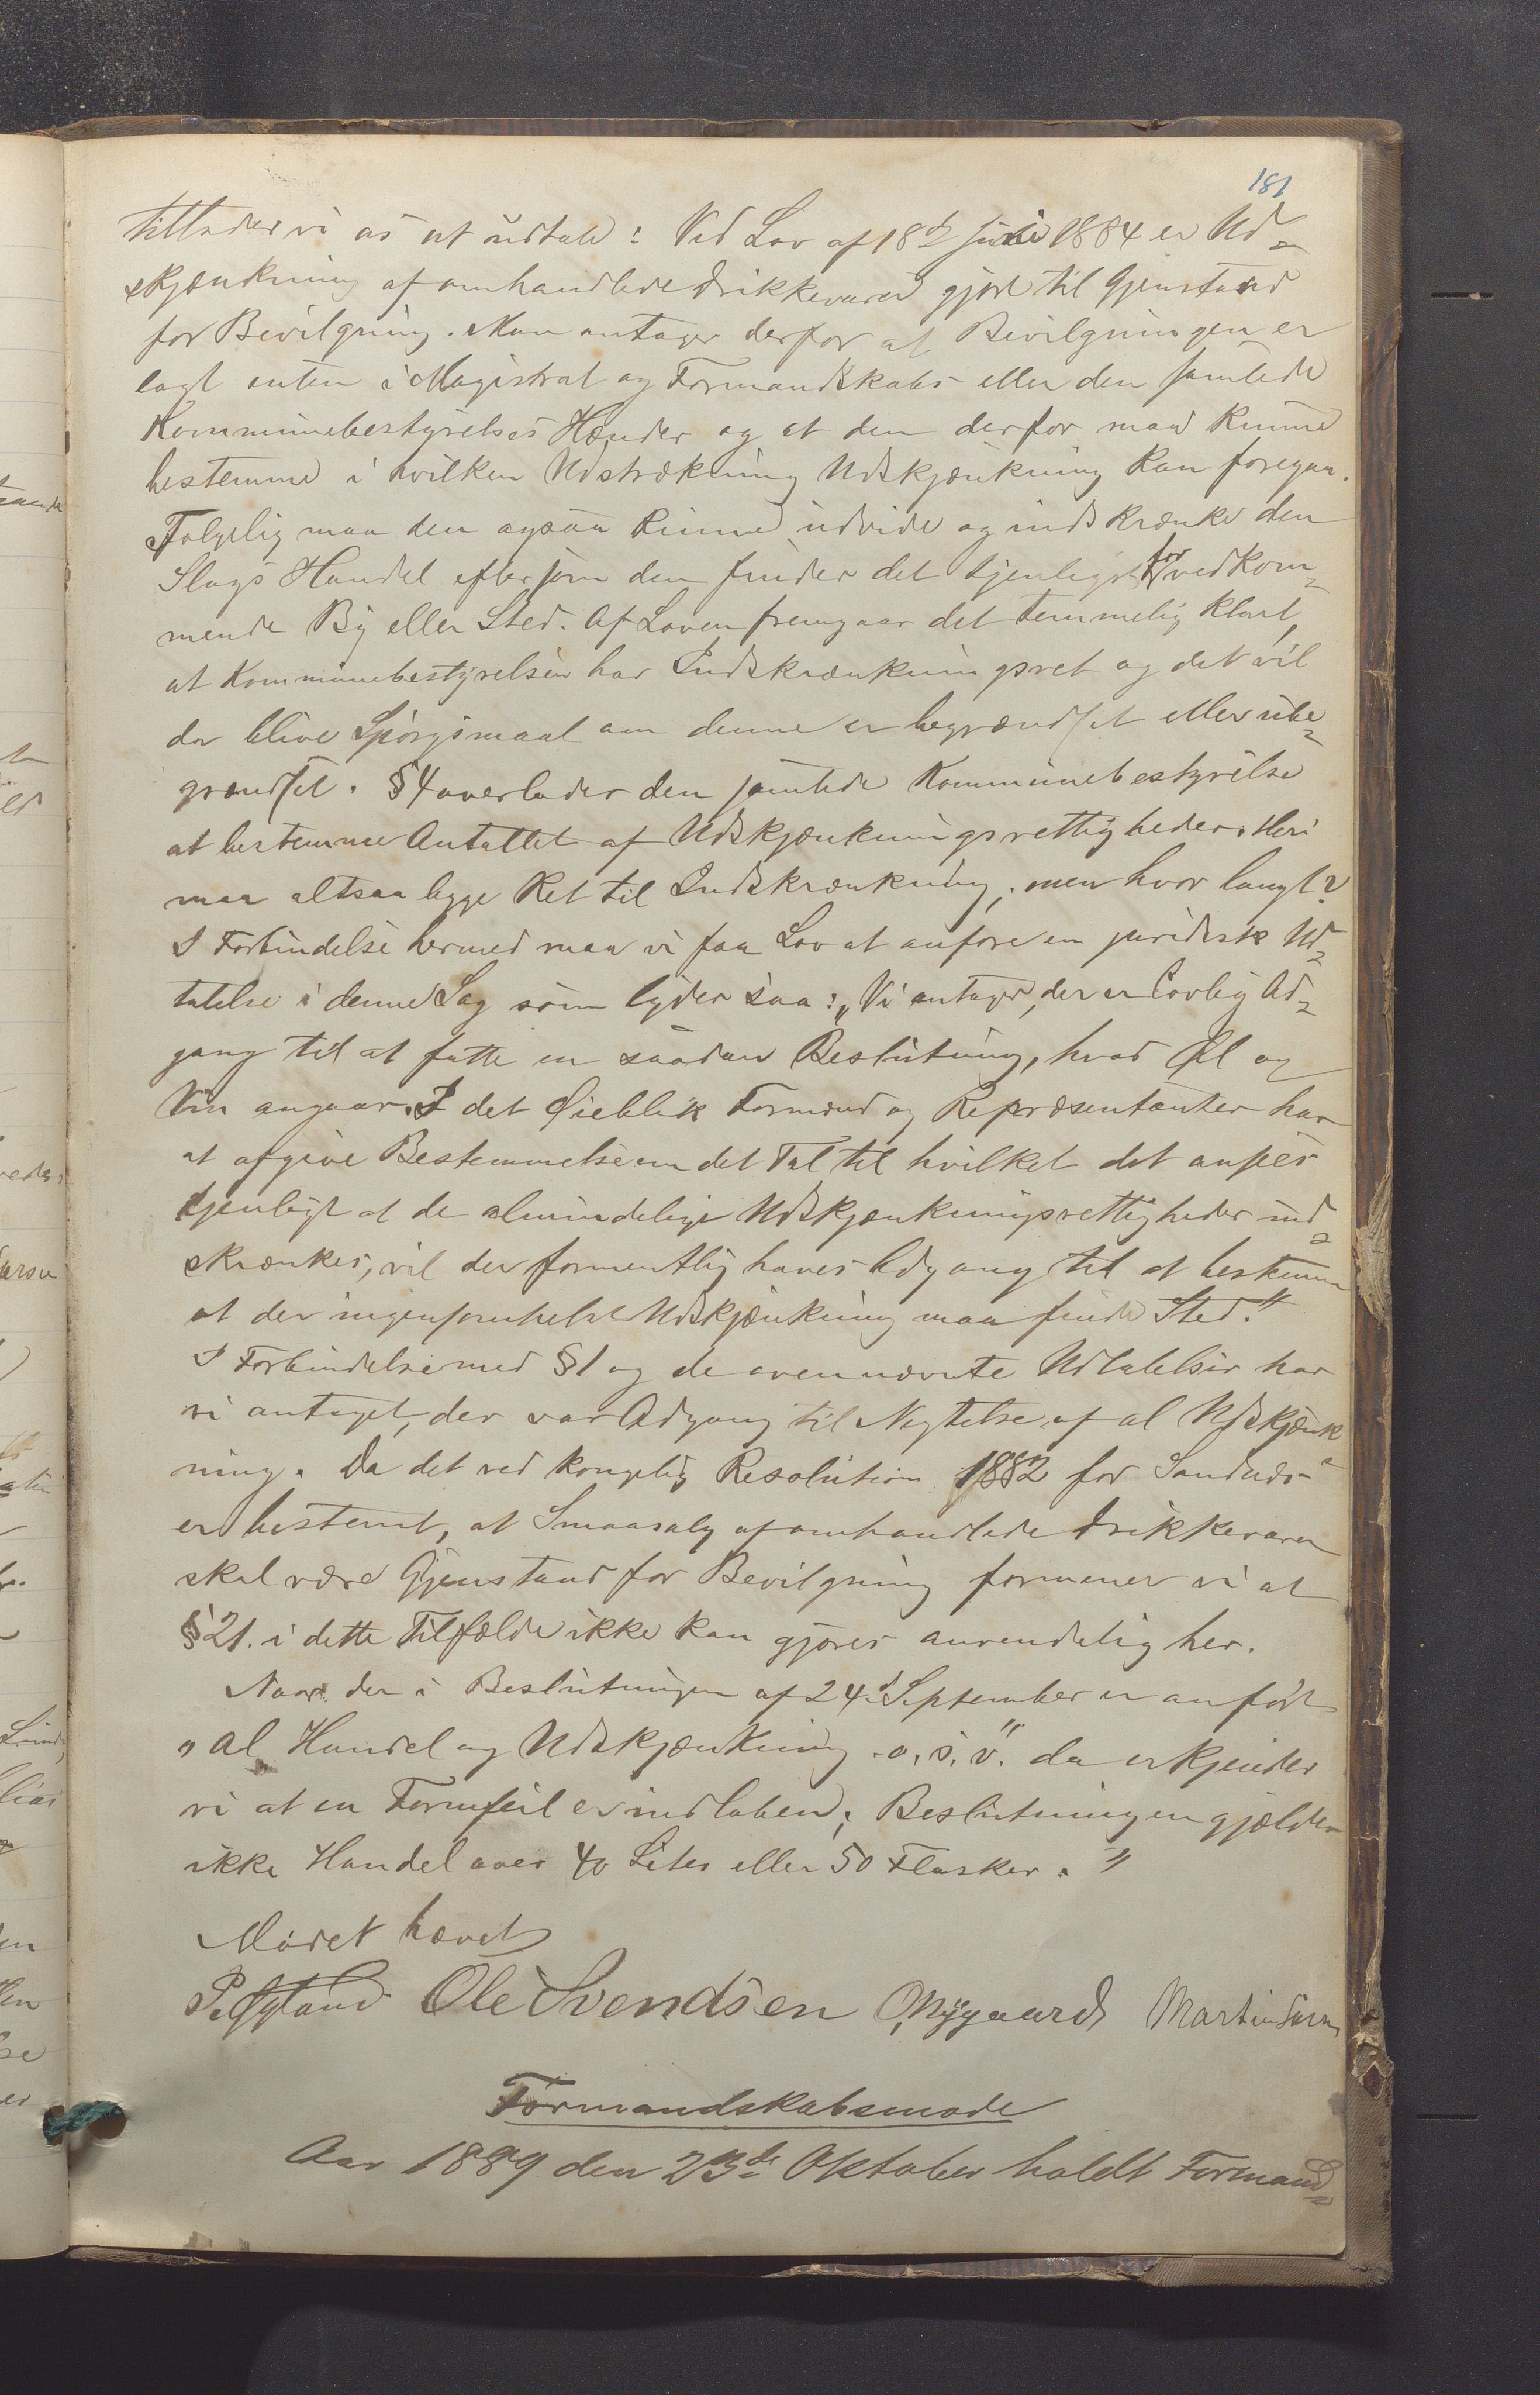 181
tillader vi os at udtale: Ved Lov af 18de Juni 1884 er Ud-
skjænkning af omhandlede Drikkevarer gjort til Gjenstand
for Bevilgning. Man antager derfor at Bevilgningen er
lagt enten i Magistrat og Formandskabs- eller den samlede
Kommunebestyrelses Hænder og at den derfor maa kunne
bestemme i hvilken Udstrækning Udskjænkning kan foregaa.
Følgelig maa den ogsaa kunne udvide og indskrænke den
Slags Handel eftersom den finder det tjenligst for vedkom-
mende By eller Sted. Af Loven fremgaar det temmelig klart,
at Kommunebestyrelsen har Indskrænkningsret og det vil
da blive Spørgsmaal om denne er begrændset eller ube-
grændset. §4 overlader den samlede Kommunebestyrelse
at bestemme Antallet af Udskjænkningsrettigheder. Heri
maa altsaa ligge Ret til Indskrænkning, men hvor langt?
I Forbindelse hermed maa vi faa Lov at anføre en juridisk Ud-
talelse i denne Sag som lyder saa: „Vi antager, der er lovlig Ad-
gang til at fatte en saadan Beslutning, hvad Øl og
Vin angaar. I det Øieblik Formænd og Repræsentanter har
at afgive Bestemmelse om det Tal til hvilket det ansees
tjenligt at de almindelige Udskjænkningsrettigheder ind-
skrænkes, vil der formentlig haves Adgang til at bestemme
at der ingensomhelst Udskjænkning maa finde Sted."
I Forbindelse med §1 og de ovennævnte Udtalelser har
vi antaget, der var Adgang til Negtelse af al Udskjænk-
ning. Da det ved kongelig Resolution 1882 for Sandnes
er bestemt, at Smaasalg af omhandlede Drikkevarer
skal være Gjenstand for Bevilgning formener vi at
§21. i dette Tilfælde ikke kan gjøres anvendelig her.
Naar der i Beslutningen af 24de September er anført
„al Handel og Udskjænkning o.s.v." da erkjender
vi at en Formfeil er indløben; Beslutningen gjælder
ikke Handel over 40 Liter eller 50 Flasker."
Mødet hævet
Ole Svendsen O. Nygaard Martin
Formandskabsmøde
Aar 1889 den 23de Oktober holdt Formand-